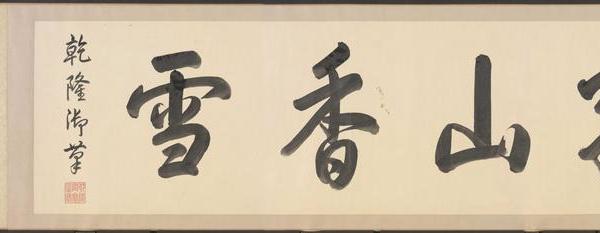 山香雪
乾隆御筆